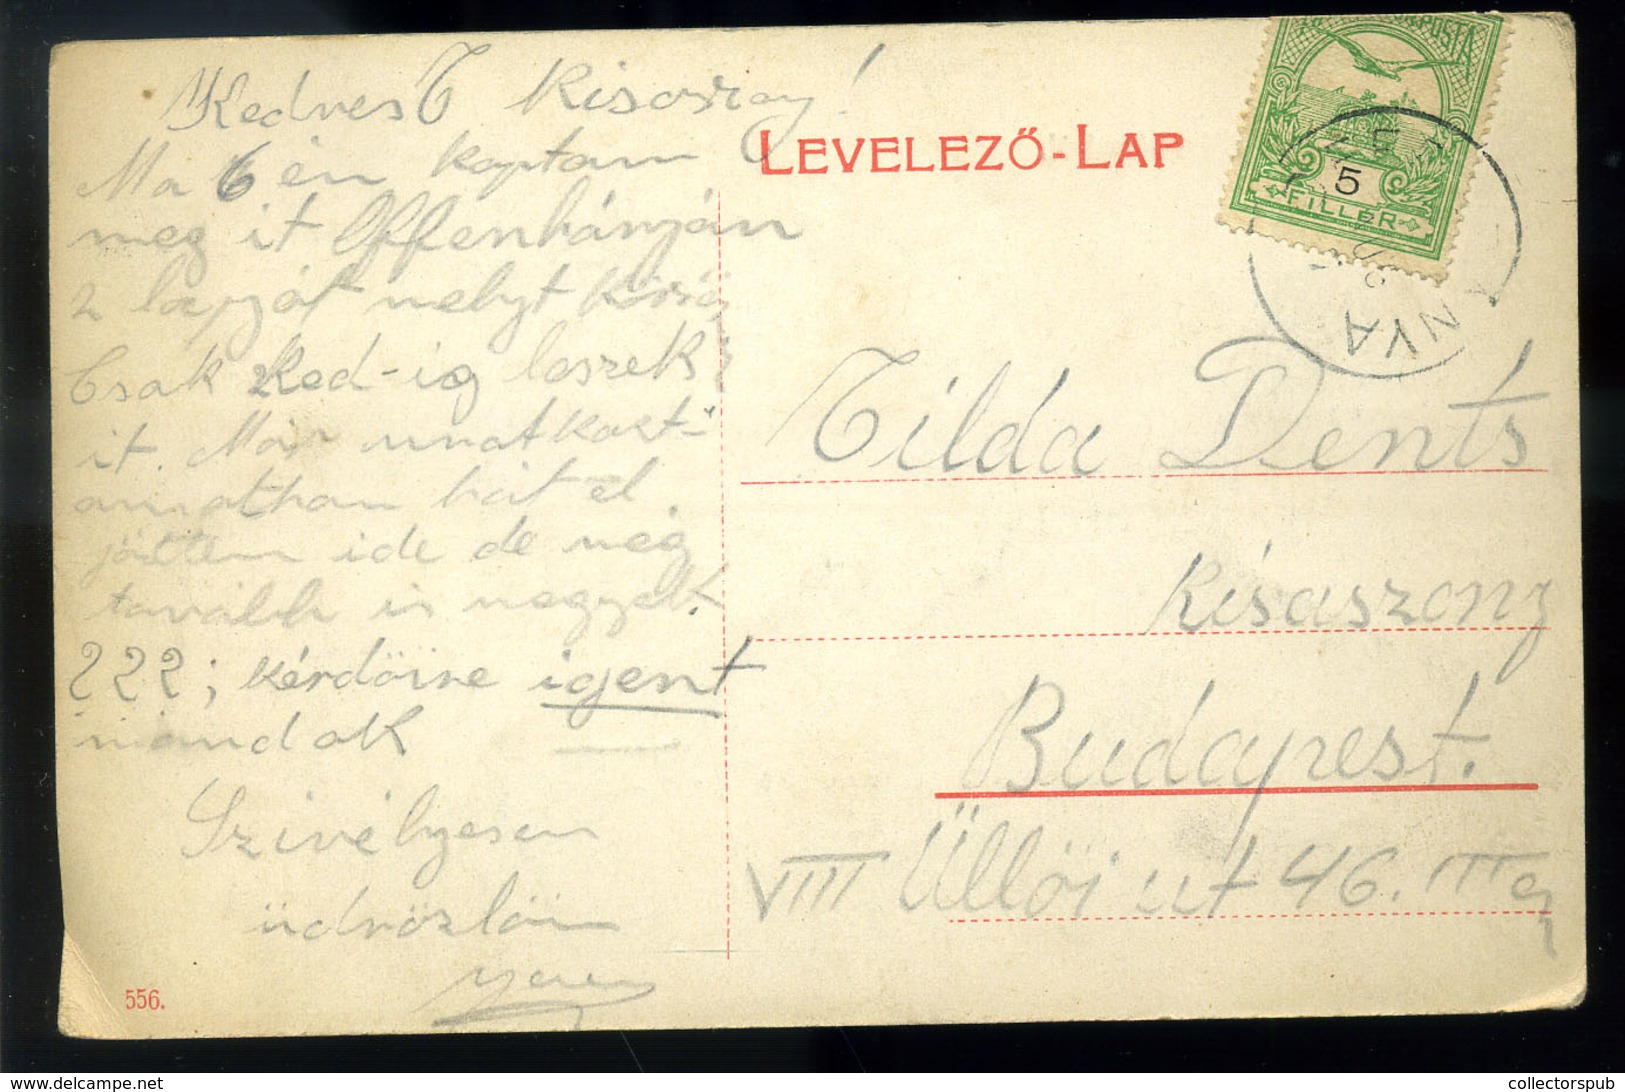 Kedves T Kisasszony!
Ma 6 én kaptam
meg it Offenbányán
2 lapját melyt
Csak Ked-ig leszek
it. Már unatkozt-
am otthon hát el
jöttem ide de még
tovább is megyek.
???; kérdőire igent
mondok
Szivélyesen
üdvözlöm
LEVELEZŐ-LAP
POSTA
5
FILLÉR
NYA
Tilda Dents
kisaszony
Budapest.
VIII Üllői ut 46. III
556.
collectorspub